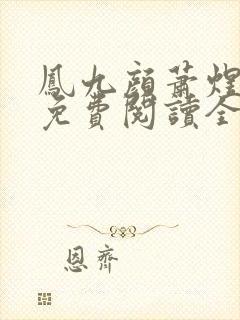 鳳九顏蕭煌
免費閱讀全
恩齊